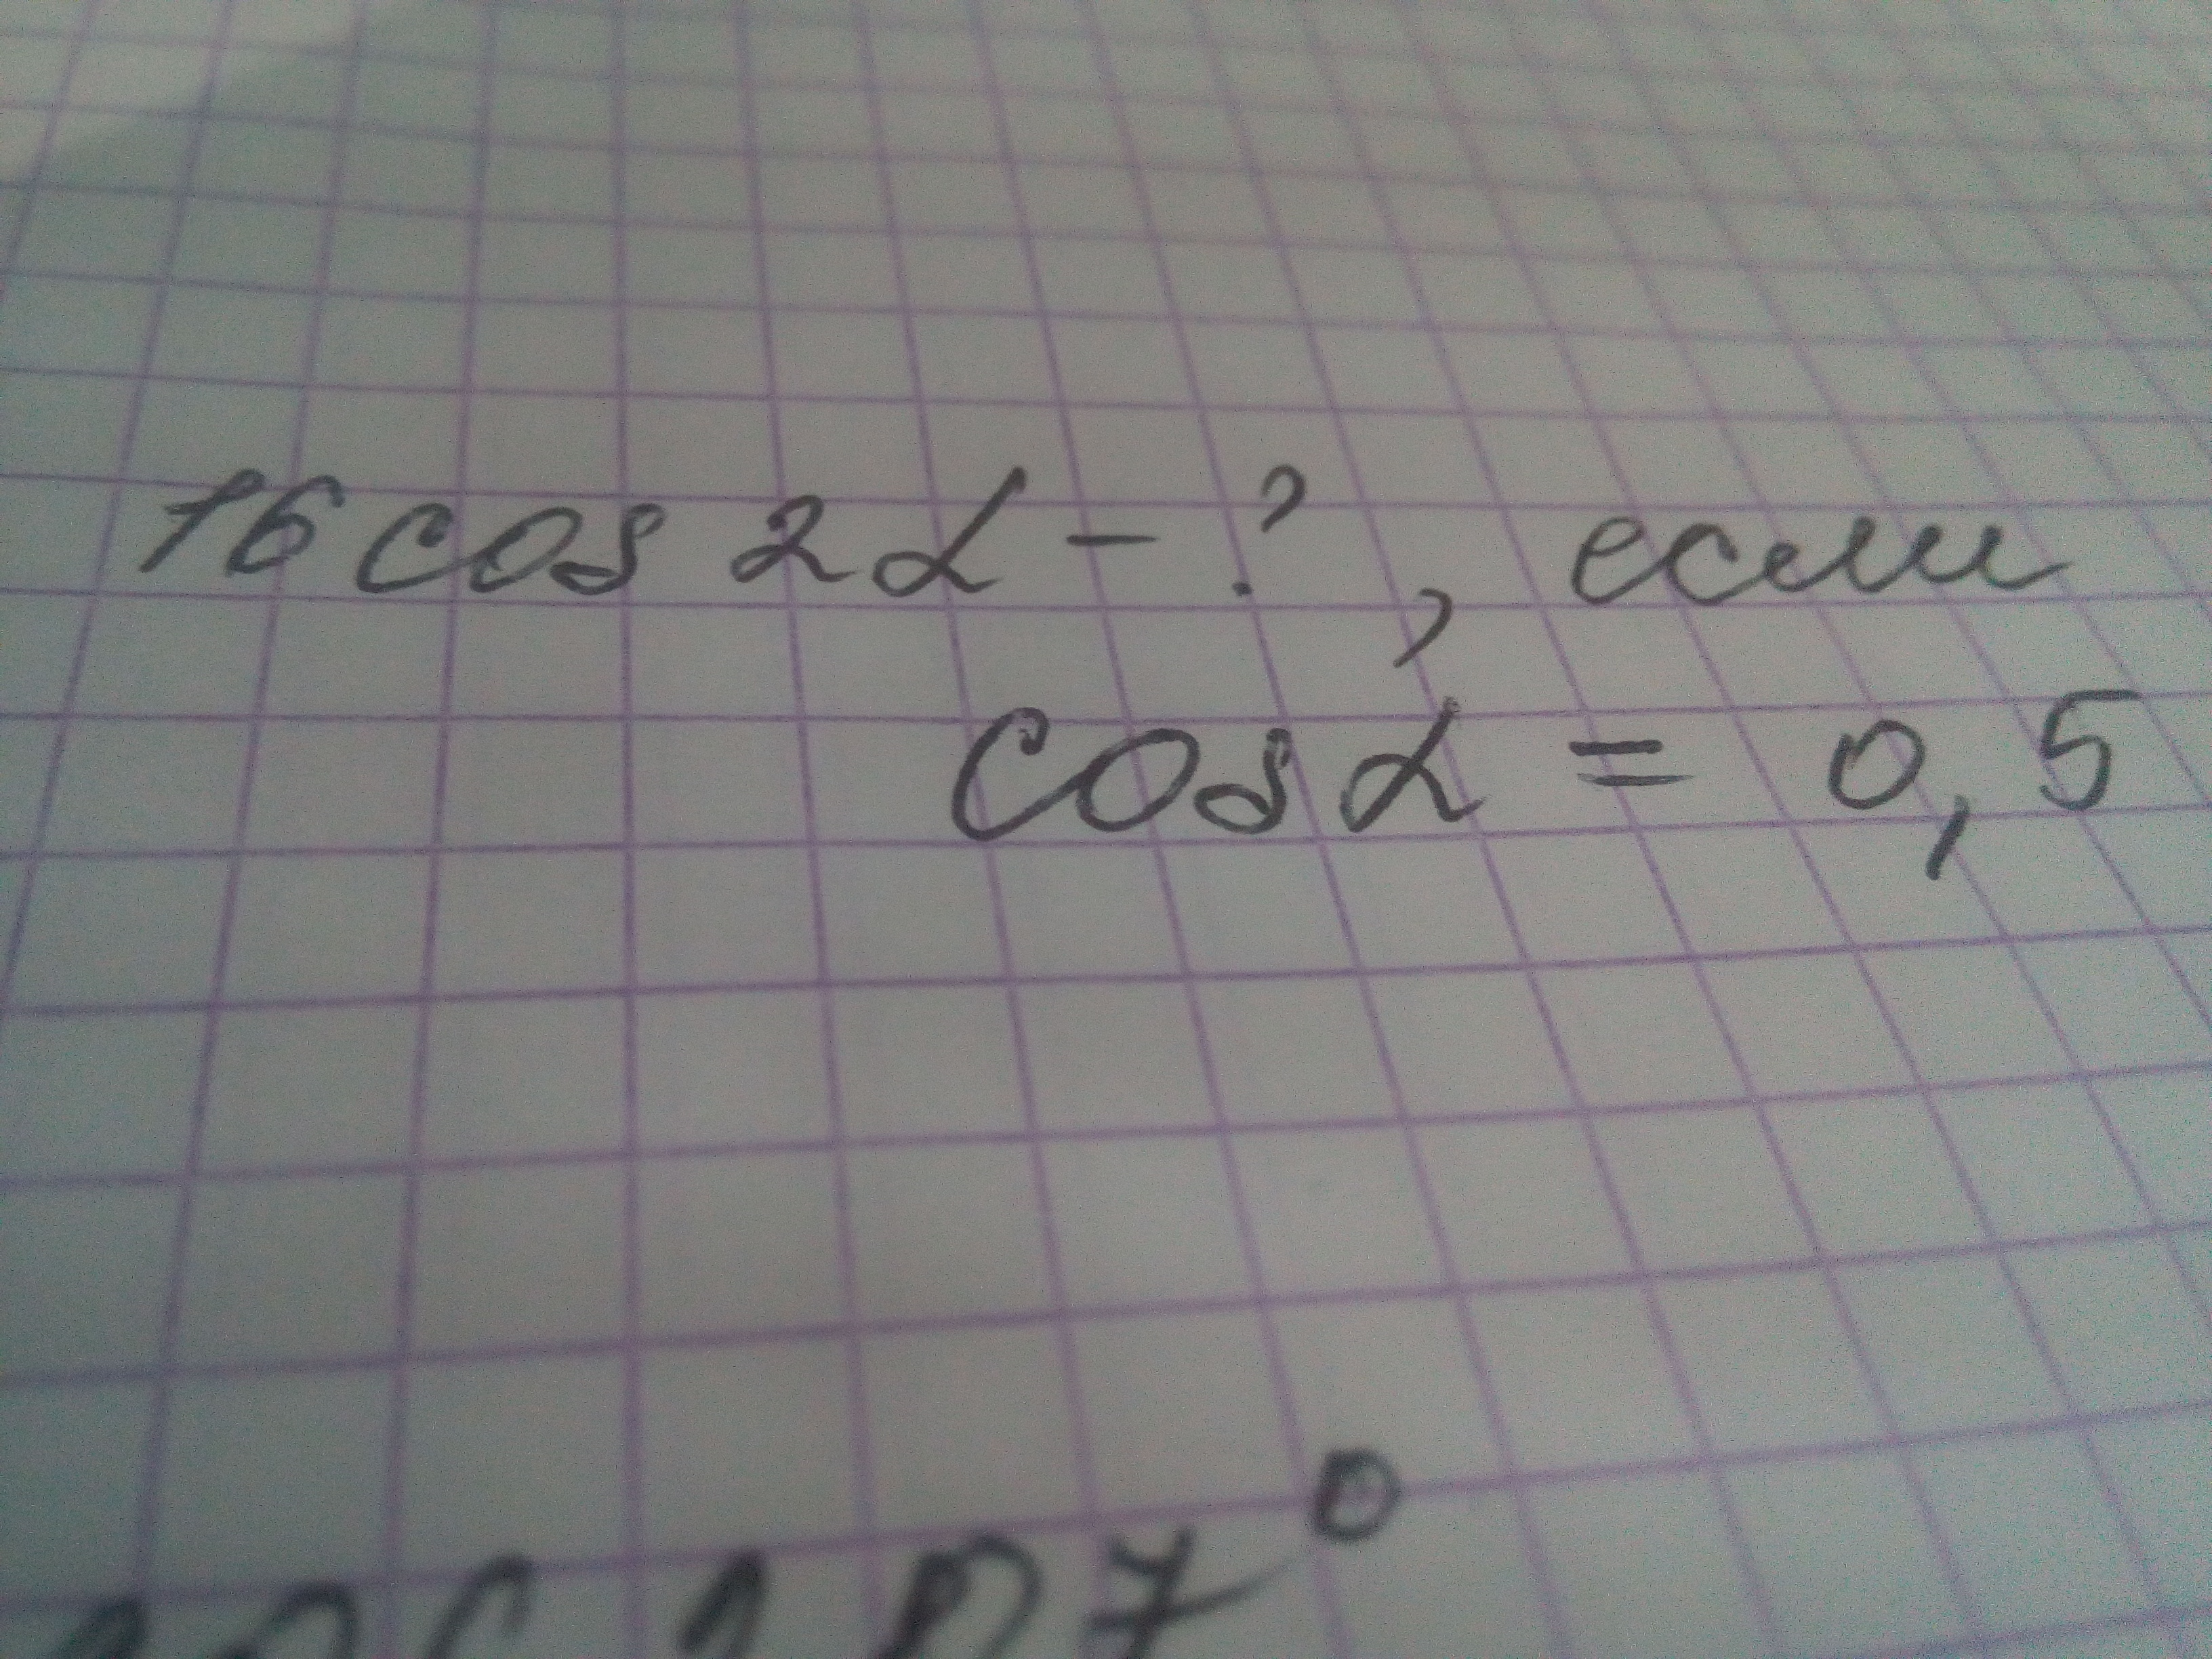 16 cos 2α - ? , если
cos α = 0,5